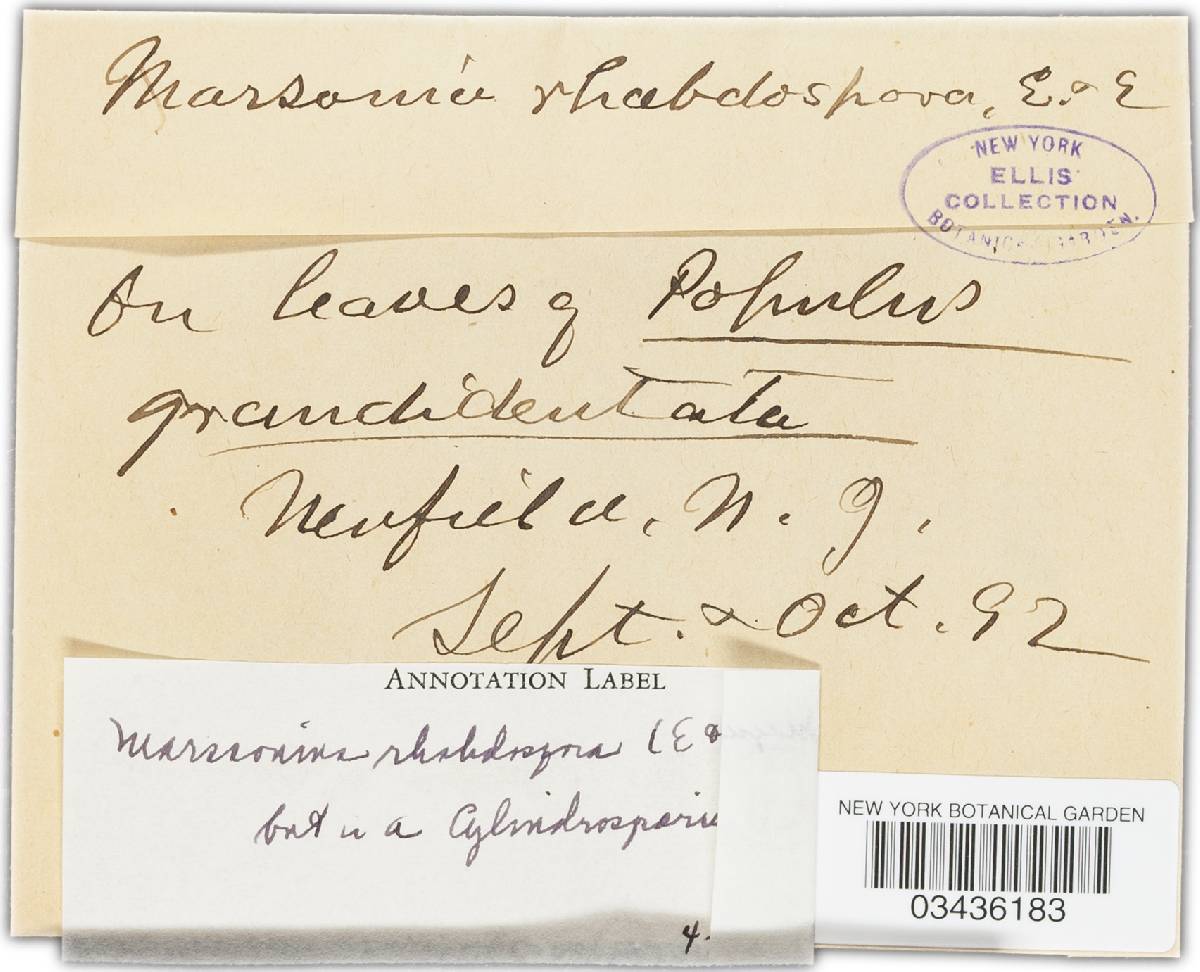 Marsonia rhabdospora, E. & E
NEW YORK
ELLIS
COLLECTION
BOTANICAL GARDEN.
On leaves of Populus
grandidentata
Newfield, N. J.
Sept. & Oct. 92
ANNOTATION LABEL
Marssonina rhabdospora (E &
but is a Cylindrosporiu
4.
NEW YORK BOTANICAL GARDEN
03436183